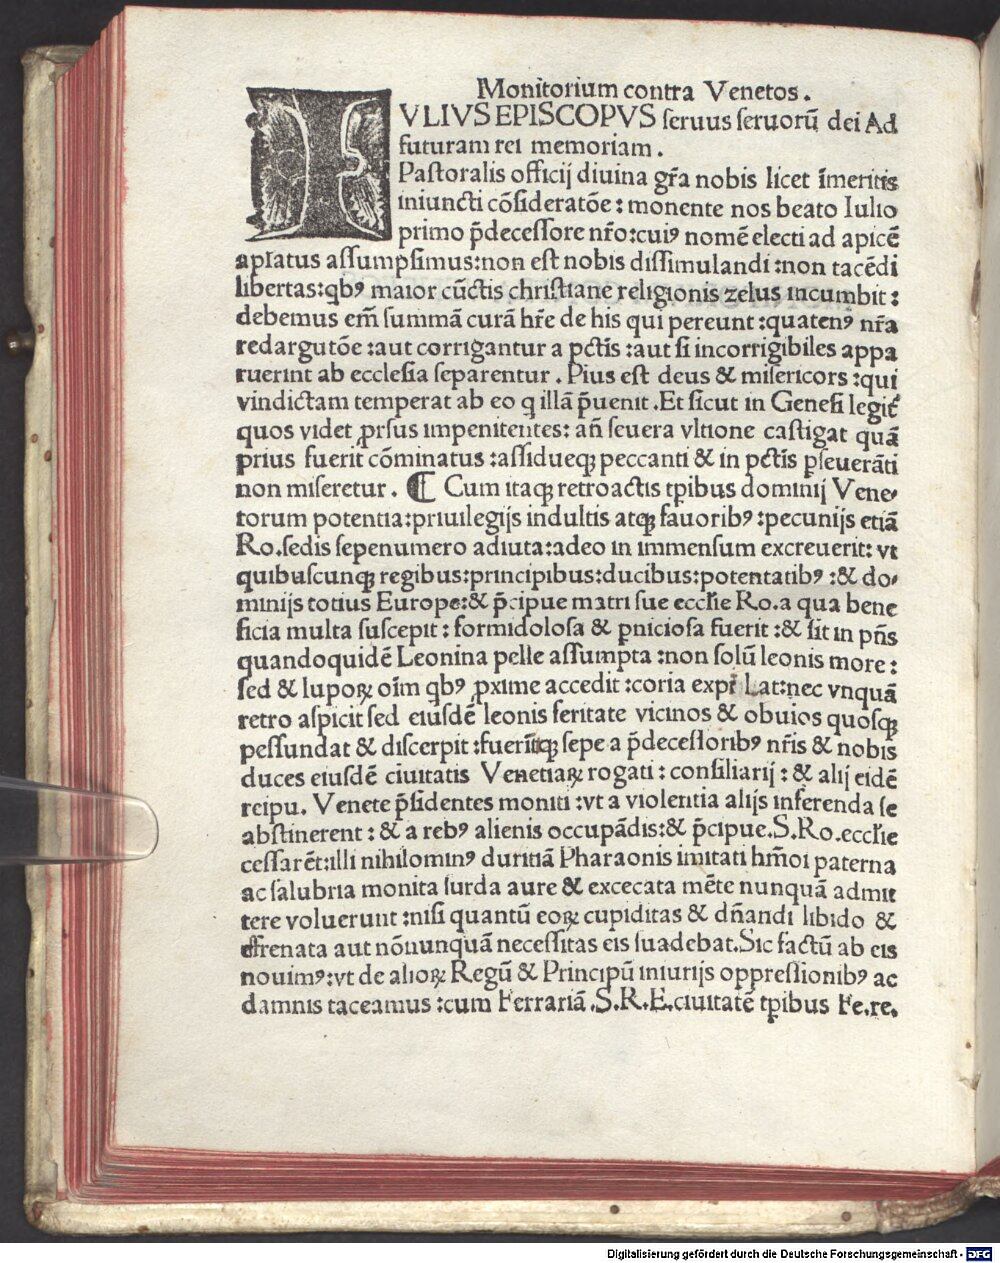 Monitorium contra Venetos.
IVLIVS EPISCOPVS ſeruus ſeruorū dei Ad
futuram rei memoriam.
Paſtoralis officij diuina gr̄a nobis licet īmeritis
iniuncti cōſideratōe : monente nos beato Iulio
primo p̄deceſſore nr̄o:cuiꝰ nomē electi ad apicē
apl̄atus aſſumpſimus:non eſt nobis diſſimulandi :non tacēdi
libertas:qbꝰ maior cūctis chriſtiane religionis zelus incumbit :
debemus em̄ ſummā curā hr̄e de his qui pereunt :quatenꝰ nr̄a
redargutōe :aut corrigantur a pctīs :aut ſi incorrigibiles appa
ruerint ab eccleſia ſeparentur . Pius eſt deus & miſericors :qui
vindictam temperat ab eo q illā p̄uenit .Et ſicut in Geneſi legit᷑
quos videt ꝓrſus impenitentes: an̄ ſeuera vltione caſtigat quā
prius fuerit cōminatus :aſſidueqꝫ peccanti & in pctīs ꝑſeuerāti
non miſeretur . ¶ Cum itaqꝫ retroactis tꝑibus dominij Vene⸗
torum potentia:priuilegijs indultis atqꝫ fauoribꝰ :pecunijs etiā
Ro.ſedis ſepenumero adiuta:adeo in immenſum excreuerit: vt
quibuſcunqꝫ regibus:principibus:ducibus:potentatibꝰ :& do⸗
minijs totius Europe:& p̄cipue matri ſue eccl̄ie Ro.a qua bene
ficia multa ſuſcepit : formidoloſa & ꝑnicioſa fuerit :& ſit in pn̄s
quandoquidē Leonina pelle aſſumpta :non ſolū leonis more :
ſed & lupoꝝ oīm qbꝰ ꝓxime accedit :coria expꝛ̄ Lat:nec vnquā
retro aſpicit ſed eiuſdē leonis feritate vicinos & obuios quoſqꝫ
peſſundat & diſcerpit :fuerītqꝫ ſepe a p̄deceſſoribꝰ nr̄is & nobis
duces eiuſdē ciuitatis Venetiaꝝ rogati : conſiliarij : & alij eidē
reipu. Venete p̄ſidentes moniti :vt a violentia alijs inferenda ſe
abſtinerent : & a rebꝰ alienis occupādis:& p̄cipue.S.Ro.eccl̄ie
ceſſarēt:illi nihilominꝰ duritiā Pharaonis imitati hm̄oi paterna
ac ſalubria monita ſurda aure & excecata mēte nunquā admit
tere voluerunt :niſi quantū eoꝝ cupiditas & dn̄andi libido &
effrenata aut nōnunquā neceſſitas eis ſuadebat.Sic factū ab eis
nouimꝰ:vt de alioꝝ Regū & Principū iniurijs oppreſſionibꝰ ac
damnis taceamus :cum Ferrariā .S.R.E.ciuitatē tꝑibus Fe.re.
Digitalisierung gefördert durch die Deutsche Forschungsgemeinschaft - DFG